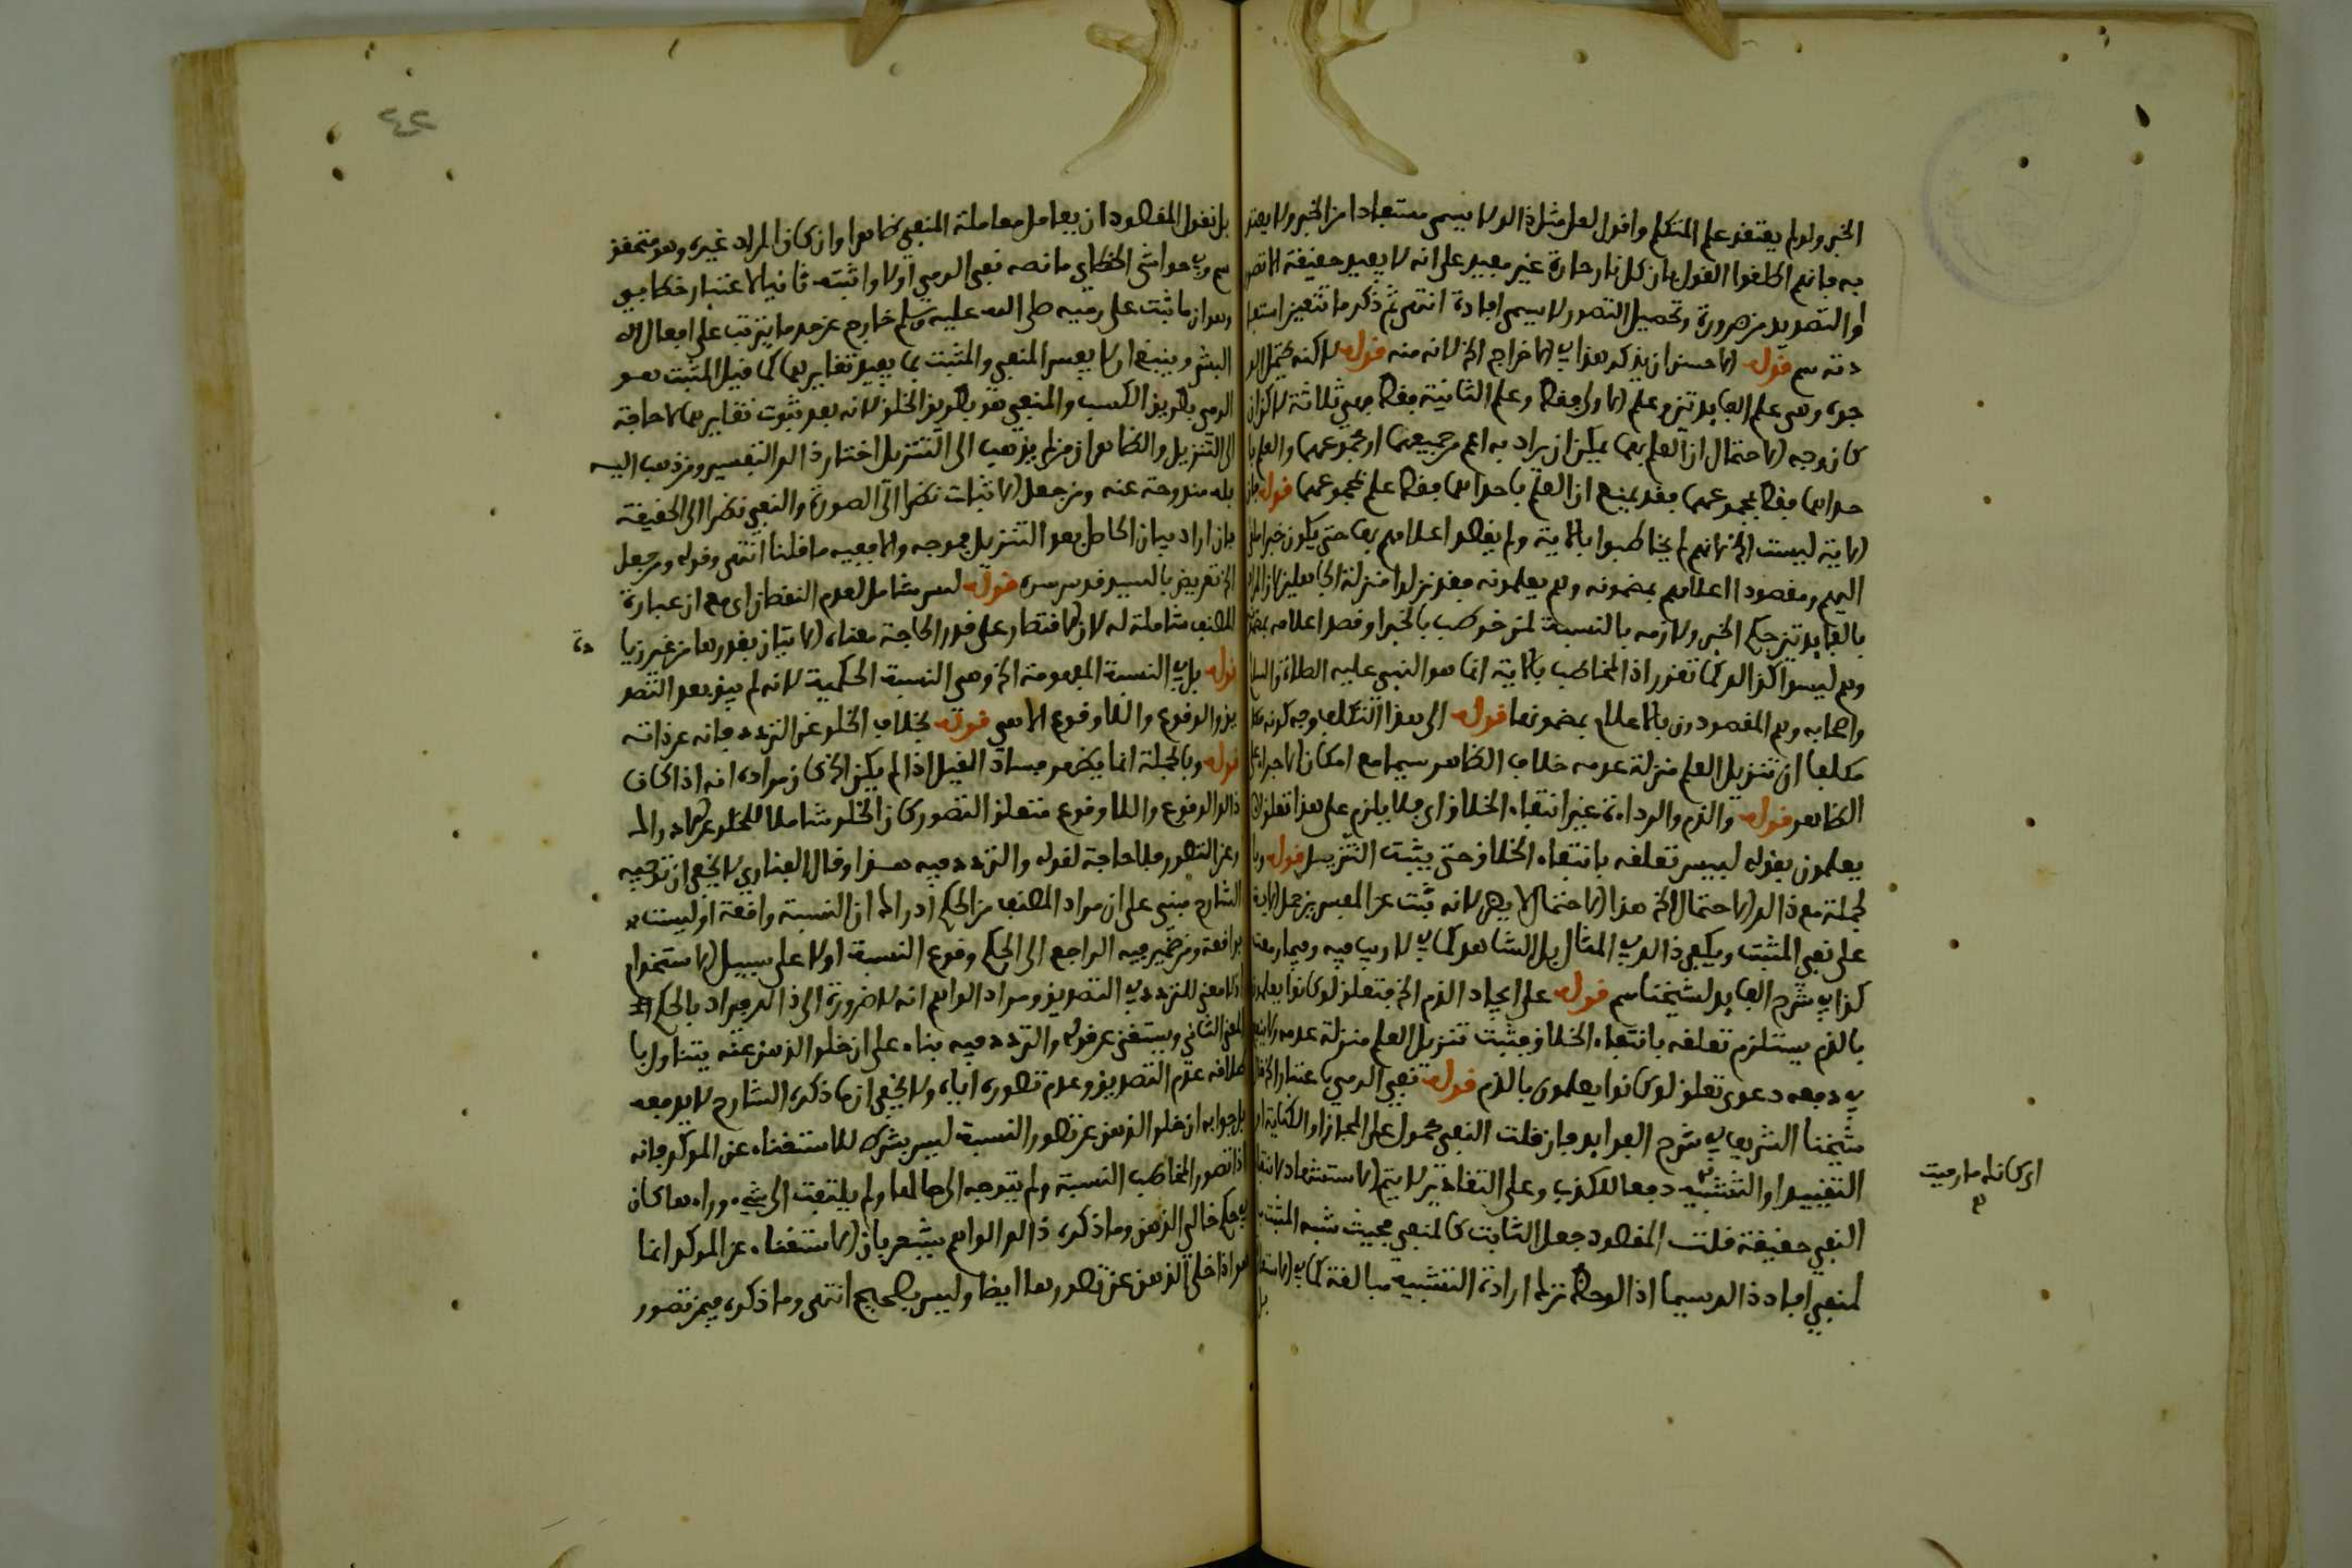 الخبر ولو لم يعتقد علم المتكلم واقول لعل مثل ذلك لا يسمى مستفادا من الخبر ولا يعتد
به فانهم اطلقوا القول بان كل نار حارة غير مفيد على انه لا يفيد حقيقة الا تصور
او التصديق ضرورة وتحصيل التصور لا يسمى افادة انتهى ثم ذكر ما تتعين استعا
دته سم قوله الاحسن ان يذكر هذا في الاخراج الخ لانه منه قوله لاكنه يحتمل
وهي علم الفايدتين علم الاولى فقط وعلم الثانية فقط فهي ثلاثة لاكن ان
كان وجه الاحتمال ان العلم بهما يمكن ان يراد به اعم من جميعهما او مجموعهما والعلم با
حداهما فقط بمجموعهما فقد يمنع ان العلم باحداهما فقط علم بمجموعهما قوله فان
الاية ليست الخ انهم لم يخاطبوا بالاية ولم يقصد اعلامهم بها حتى يكون خبرا ملقى
اليهم ومقصود اعلامهم بمضمونه وهم يعلمونه فقد نزلوا منزلة الجاهلين لان المراد
بالفايدتين حكم الخبر ولازمه بالنسبة لمن خوطب بالخبر او قصد اعلامه بمضمونه
وهم ليسوا كذلك كما تقرر اذ المخاطب بالاية انما هو النبي عليه الصلاة والسلام
واصحابه وهم المقصودون بالاعلام بمضمونها قوله الى هذا التكلف وجه كونه تكلفا
ان تنزيل العلم منزلة عدمه خلاف الظاهر سيما مع امكان الاجراء على
الظاهر قوله والذم والرداءة غير انتفاء الخلاق اي فلا يلزم على هذا تعلق لو كانوا
يعلمون بقوله لبيس تعلقه بانتفاء الخلاق حتى يثبت التنزيل قوله وبا
لجملة مع ذلك الاحتمال الخ هذا الاحتمال لا يضر لانه ثبت عن المفسرين حمل الاية
على نفي المثبت ويكفي ذلك في المثال بل الشاهد كما في لا ريب فيه وفيما رميت
كذا في شرح الفوايد لشيخنا سم قوله على ايجاد الذم الخ فتعلق لو كانوا يعلمون
بالذم يستلزم تعلقه بانتفاء الخلاق فثبت تنزيل العلم منزلة عدمه ولا ينفع
في دفعه دعوى تعلق لو كانوا يعلمون بالذم قوله نفي الرمي باعتبار الخ قال
شيخنا الشريف في شرح الفوايد فان قلت النفي محمول على المجاز او الكناية او
التقييد او التشبيه دفعا للكذب وعلى التقادير لا يتم الاستشهاد لانتفا
النفي حقيقة قلت المقصود جعل الثابت كالمنفي بحيث شبه المثبت با
لمنفي افاد ذلك سيما اذا لوحظ ترك اداة التشبيه مبالغة كما في الاستعا
بل
اي كانك ما رميت
٤٢
بل نقول المقصود ان يعامل معاملة المنفي ظاهرا وان كان المراد غيره وهو متحقق
سم وفي حواشي الخطاي ما نصه نفي الرمي اولا واثبته ثانيا لاعتبار خطابي
وهو ان ما ثبت على رميه صلى الله عليه وسلم خارج عن حد ما يترتب على افعال
البشر وينبغي ان لا يفسر المنفي والمثبت بما يفيد تغايرهما كما قيل المثبت هو
الرمي بطريق الكسب والمنفي هو بطريق الخلق لانه بعد ثبوت تغايرهما لا حاجة
الى التنزيل والظاهر ان من لم يذهب الى التنزيل اختار ذلك التفسير ومن ذهب اليه
فله مندوحة عنه ومن جعل الاثبات نظرا الى الصورة والنفي نظرا الى الحقيقة
فان اراد بيان الحاصل بعد التنزيل فموجه والا ففيه ما قلنا انتهى وقوله ومن جعل
الخ تعريض بالسيد قدس سره قوله ليس شاملا لعدم النقصان اي مع ان عبارة
المصنف شاملة له لان الاقتصار على قدر الحاجة معناه الاتيان بقدرها من غير زيا
دة
قوله بل في النسبة المفهومة الخ وهي النسبة الحكمية لانه لم يبق بعد التصو
رين والوقوع واللا وقوع الا هي قوله بخلاف الخلو عن التردد فانه عن ذاته
قوله وبالجملة انما يظهر فساد القيل اذا لم يكن الخ كان مراده انه اذا كان
ذلك الوقوع واللا وقوع متعلق التصور كان الخلو شاملا للخلو عن الادراك
وعن التصور فلا حاجة لقوله والتردد فيه هذا وقال الفناري لا يخفى ان توجيه
الشارح مبني على ان مراد المصنف من الحكم ادراك ان النسبة واقعة او ليست
بواقعة ومن ضمير فيه الراجع الى الحكم وقوع النسبة اولا على سبيل الاستخدام
اذ لا معنى للتردد في التصديق ومراد الواهم انه لا ضرورة الى ذلك فيراد بالحكم
المعنى الثاني ويستغنى عن قوله والتردد فيه بناء على ان خلو الذهن عنه يتناول با
طلاقه عدم التصديق وعدم تصوره اياه ولا يخفى ان ما ذكره الشارح لا يدفعه
بل جوابه ان خلو الذهن عن تصور النسبة ليس بشرط للاستغناء عن الموكد فانه
اذا تصور المخاطب النسبة ولم يتوجه الى حالها ولم يلتفت الى شيء وراءها كان
في حكم خالي الذهن وما ذكره ذلك الواهم يشعر بان الاستغناء عن الموكد انما
هو اذا خلا الذهن عن تصورها ايضا وليس بصحيح انتهى وما ذكره فيمن تصور